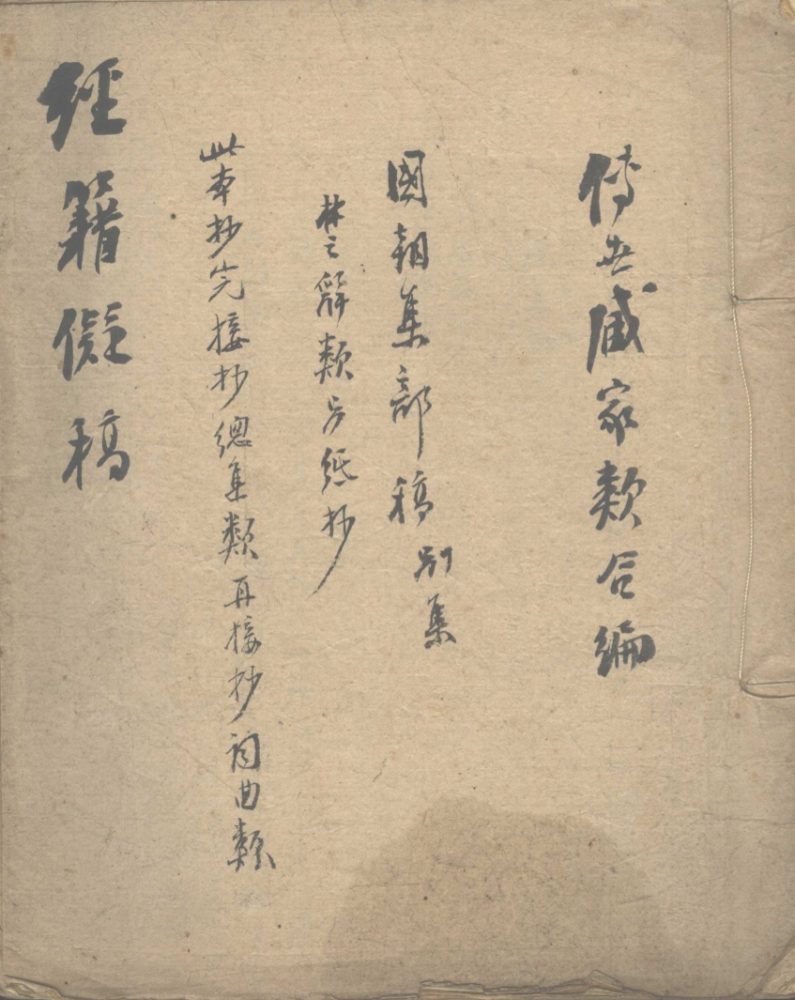 傳世藏家類合編
國朝集部稿 別集
楚辭類另紙抄
此本抄完接抄總集類再接抄詞曲類
經籍儗稿